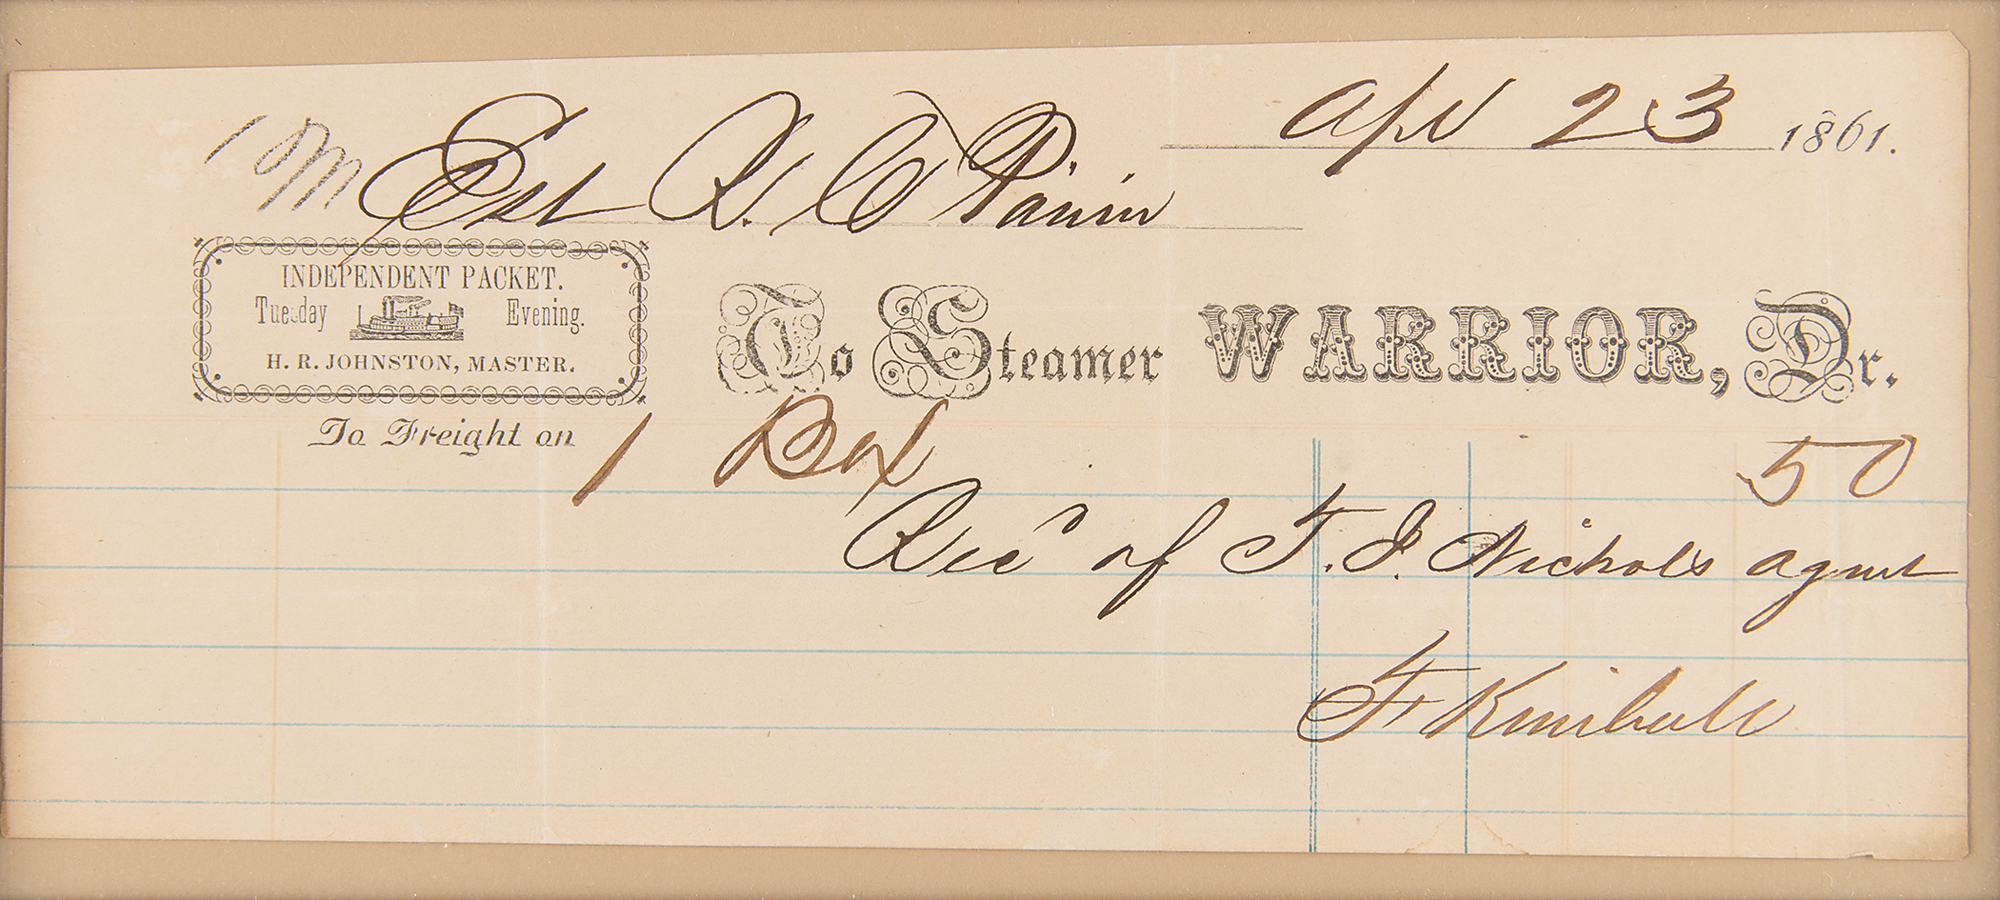 Apl 23 1861.
M Est R. C
INDEPENDENT PACKET.
Tuesday Evening.
H. R. JOHNSTON, MASTER.
To Steamer WARRIOR, Dr.
To Freight on 1 Box 50
Recd of F. J. Nichols agent
F Kimball